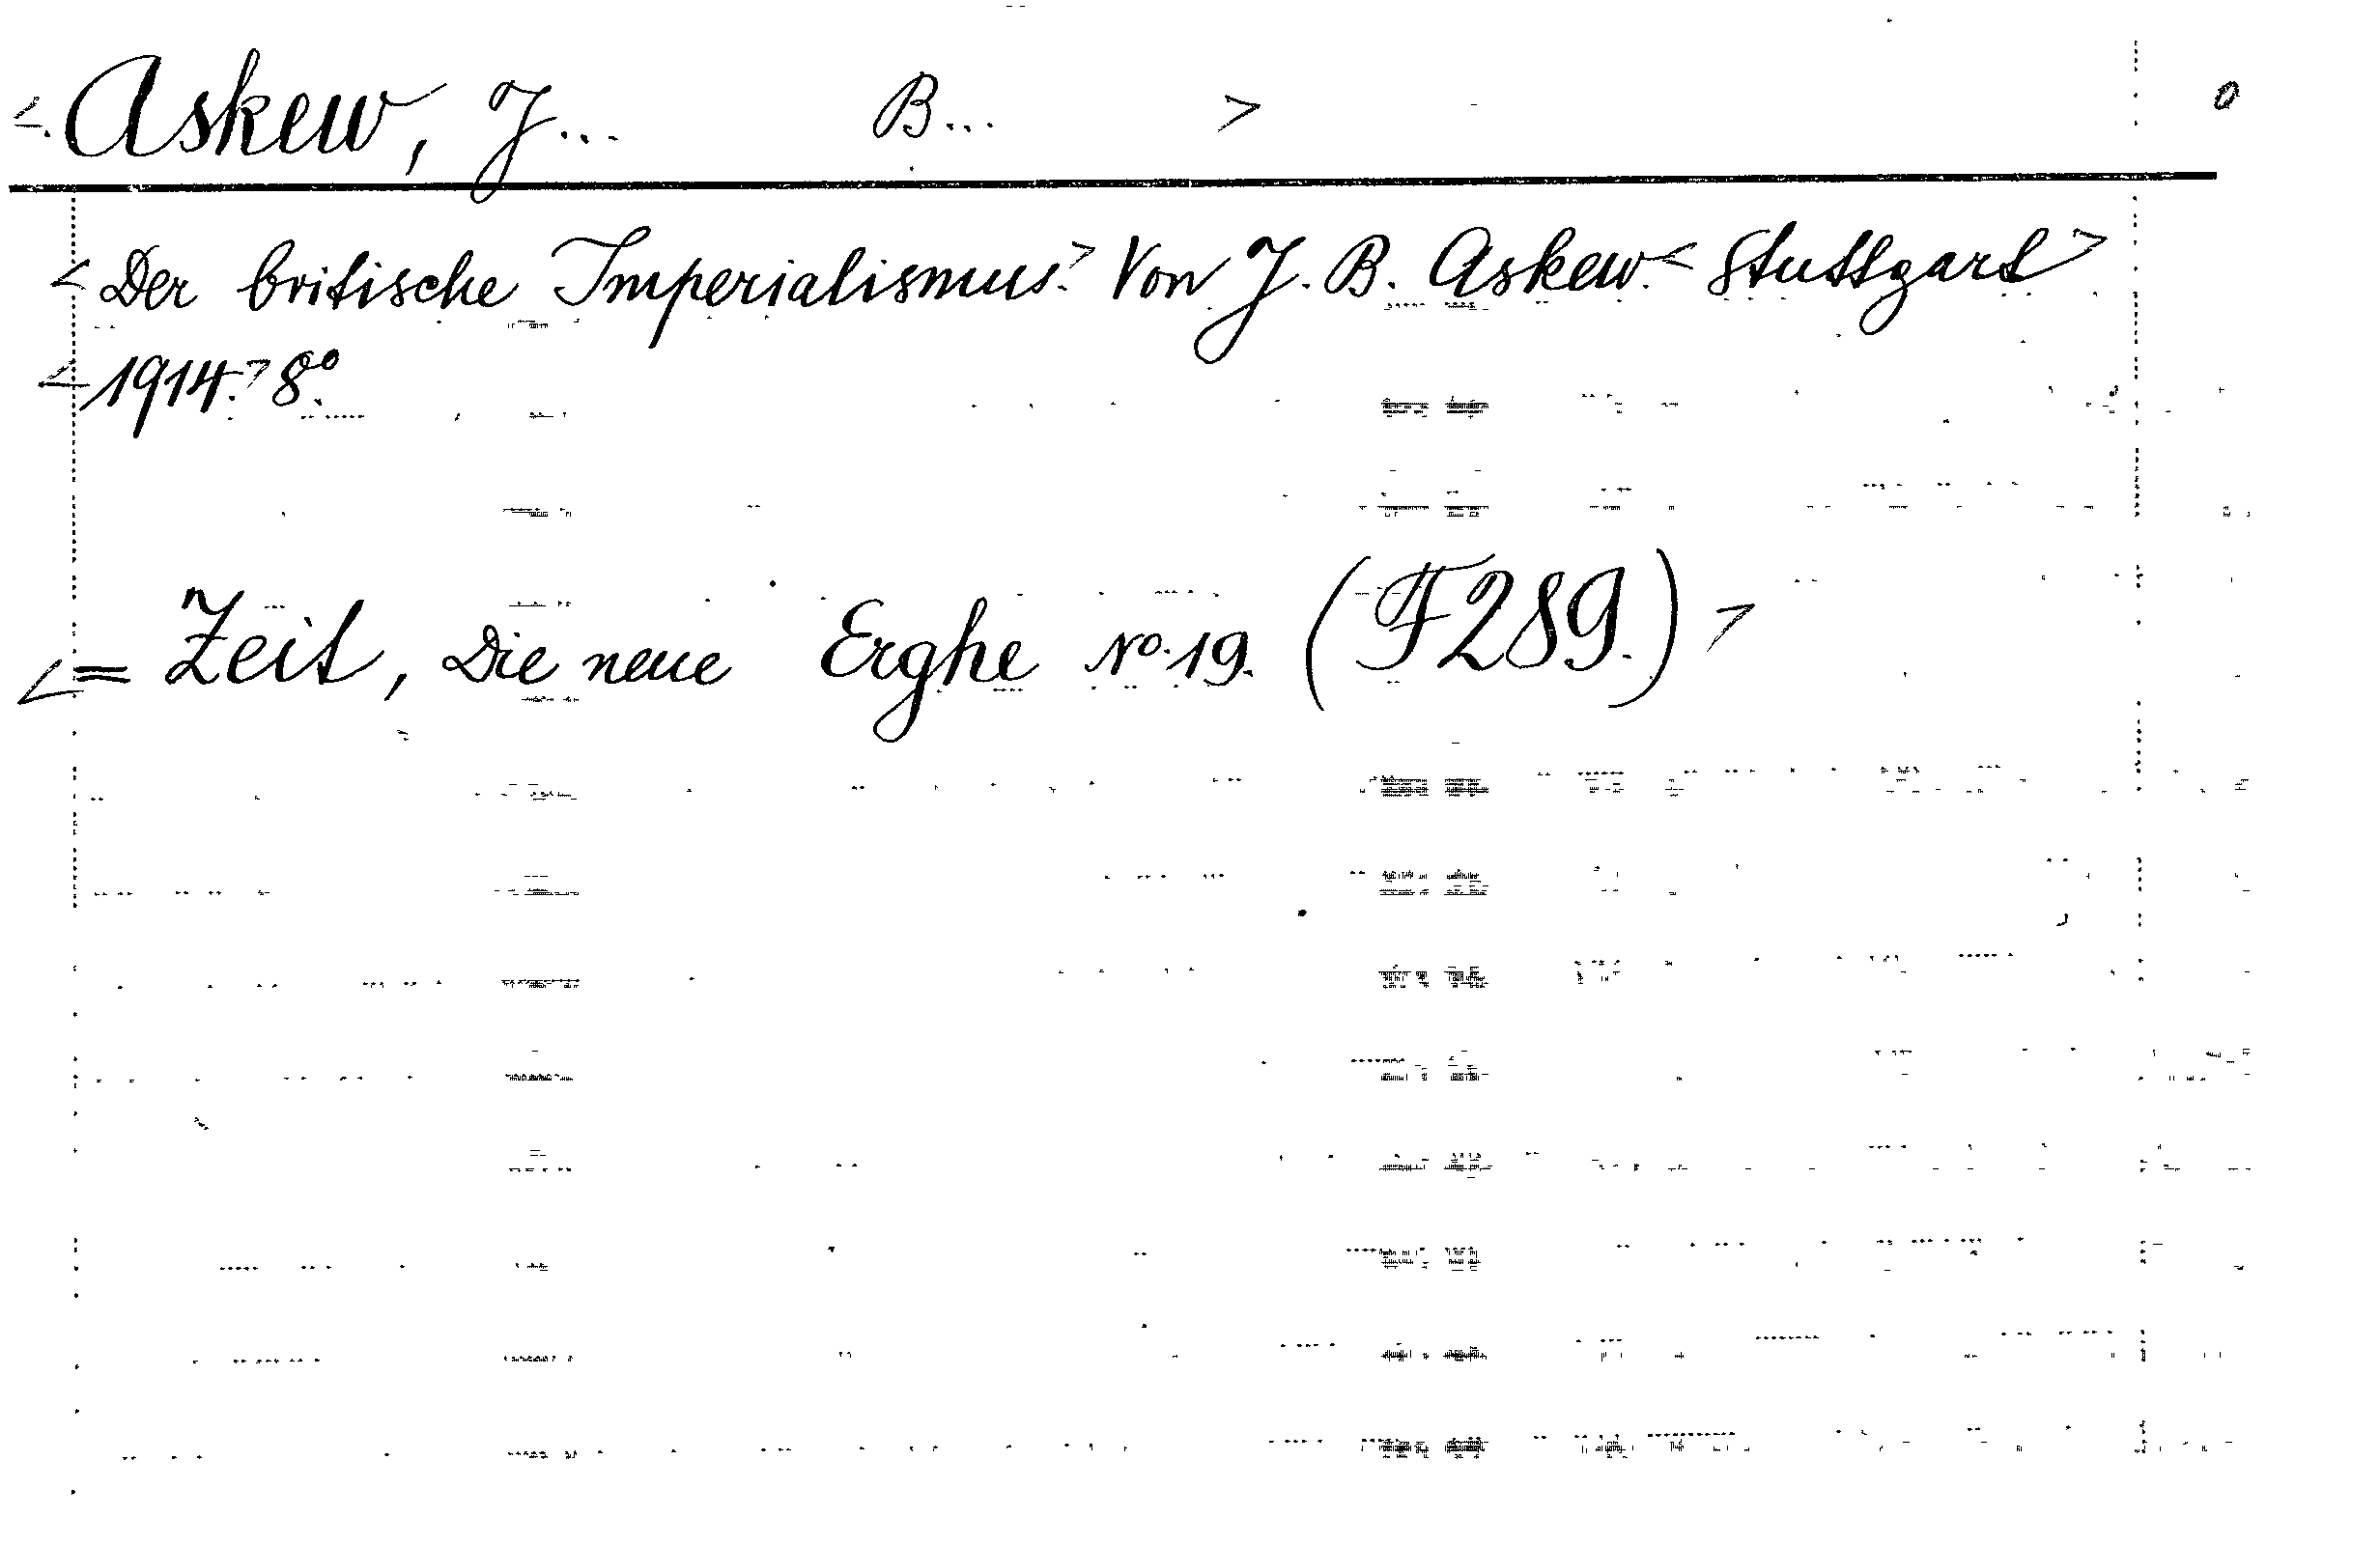 <Askew, J... B... > 0
<Der britische Imperialismus.> Von J. B. Askew.< Stuttgart>
<1914.> 8º.
<= Zeit, Die neue Erghe Nº. 19. (F289.)>